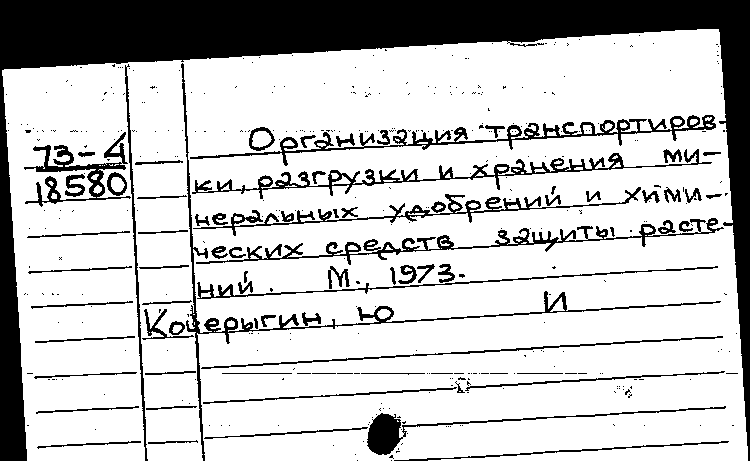 73-4
18580
Организация транспортиров-
ки, разгрузки и хранения ми-
неральных удобрений и хими-
ческих средств защиты расте-
ний. М., 1973.
Кочерыгин, Ю И